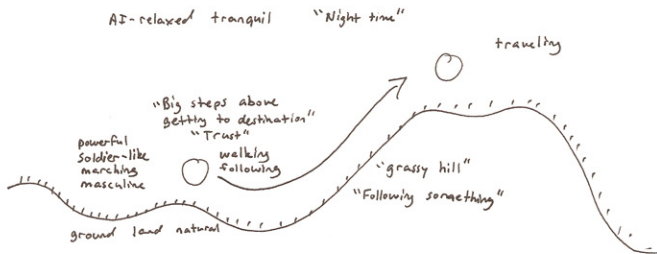 AI-relaxed tranquil "Night time"
traveling
"Big steps above
getting to destination"
"Trust"
powerful
soldier-like
marching
masculine
walking
following
"grassy hill"
"Following something"
ground land natural